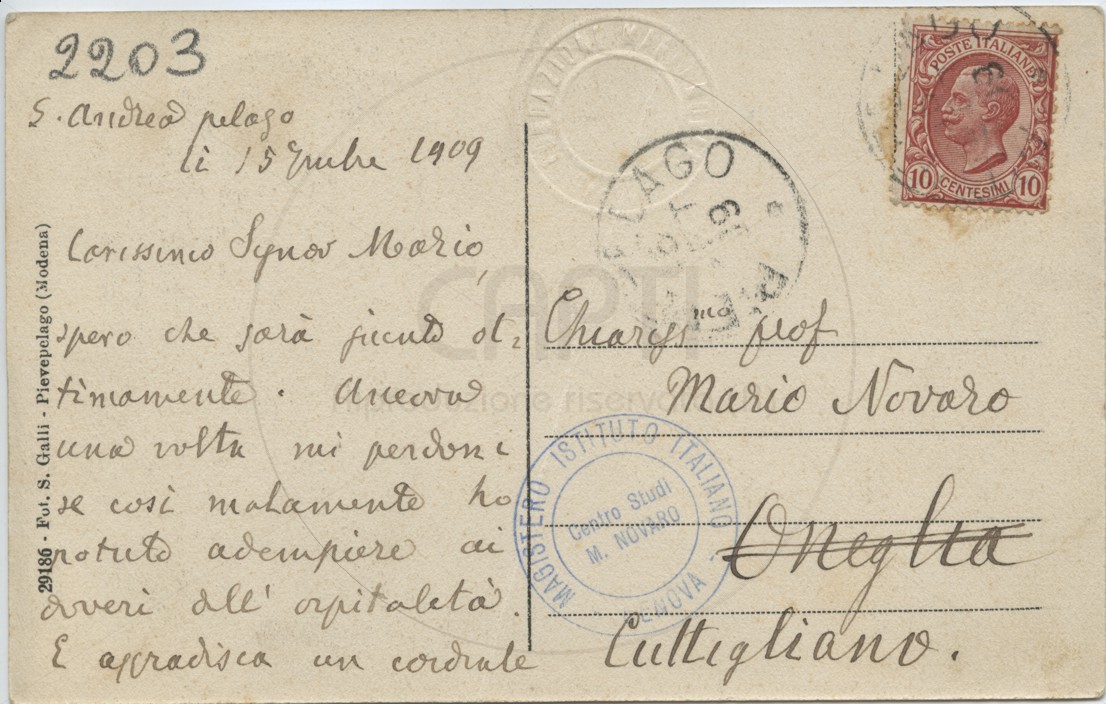 2203
S. Andrea pelago
li 15 7mbre 1909
Carissimo Signor Mario,
spero che sarà giunto ot=
timamente. Ancora
una volta mi perdoni
se così malamente ho
potuto adempiere ai
doveri dell' ospitalità.
E aggradisca un cordiale
29186 - Fot. S. Galli - Pievepelago (Modena)
FONDAZIONE MARIO NOVARO
POSTE ITALIANE
10 CENTESIMI 10
LAGO
CAPTI
riproduzione riservata
Chiariss mo prof
Mario Novaro
Oneglia
Cuttigliano.
MAGISTERO ISTITUTO ITALIANO - GENOVA -
Centro Studi
M. NOVARO